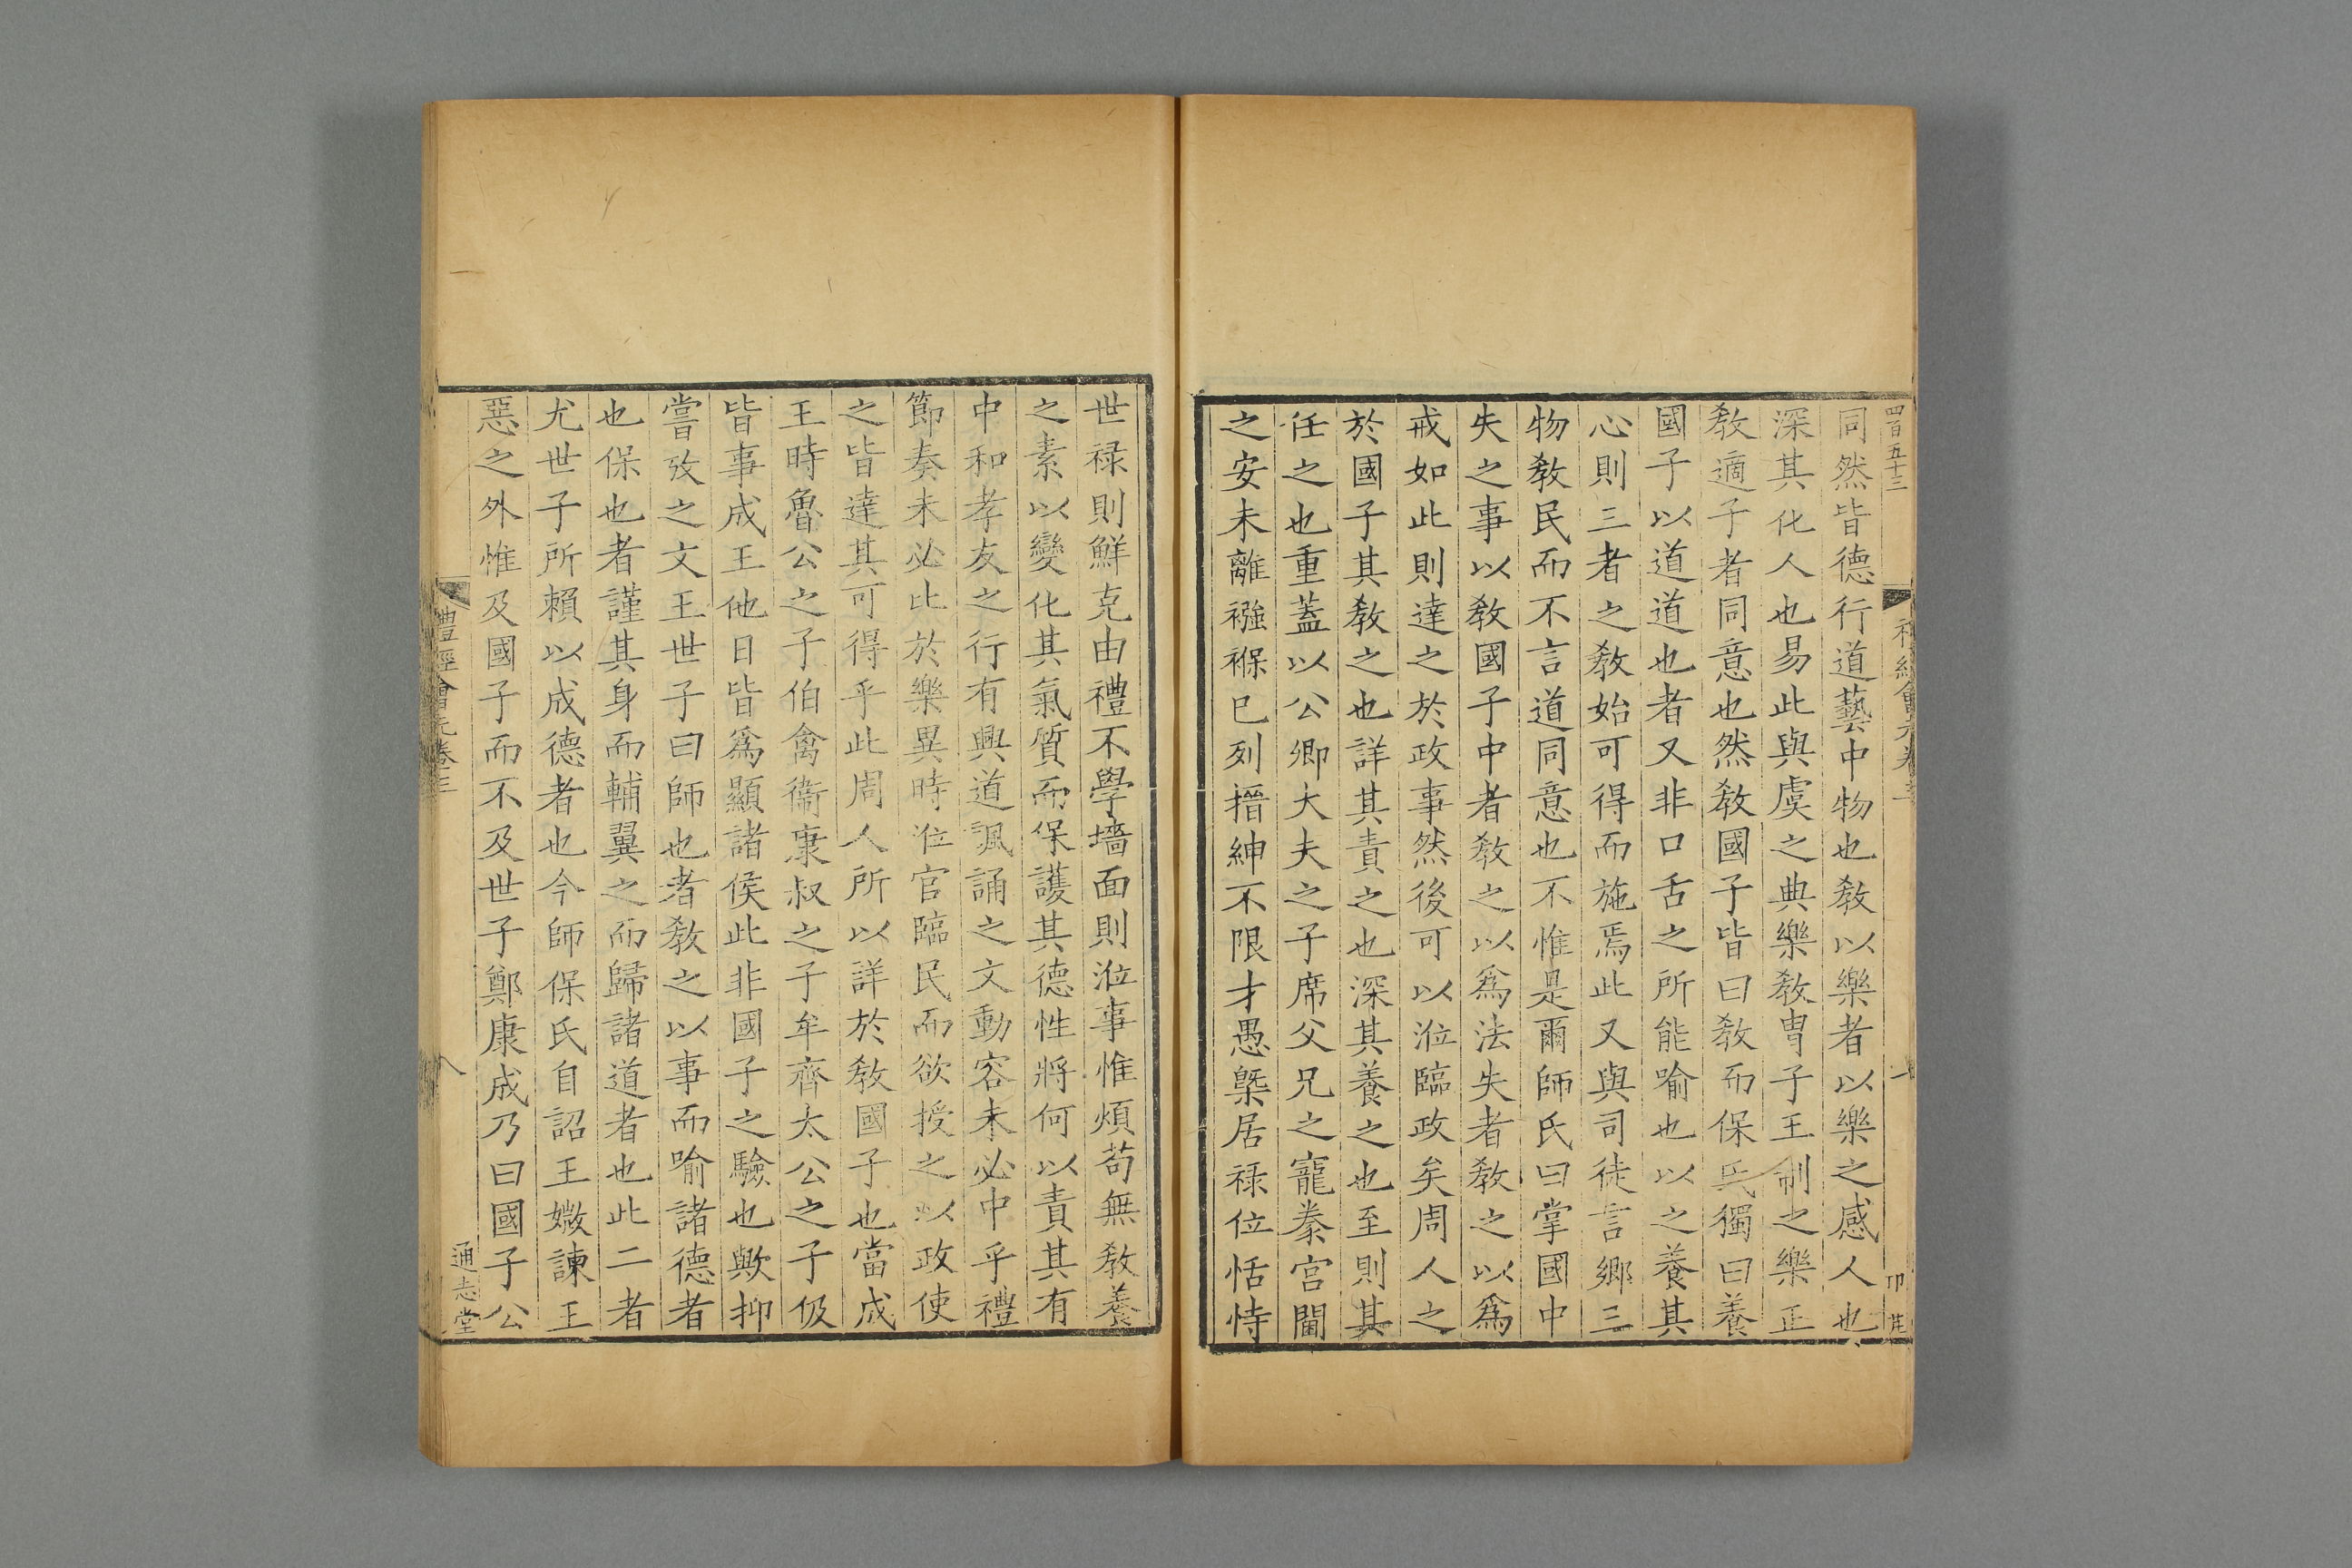 四百五十三
同然皆德行道藝中物也敎以樂者以樂之感人也
深其化人也易此與虞之典樂敎胄子王制之樂正
敎適子者同意也然敎國子皆曰敎而保氏獨曰養
國子以道道也者又非口舌之所能喻也以之養其
心則三者之敎始可得而施焉此又與司徒言鄉三
物敎民而不言道同意也不惟是爾師氏曰掌國中
失之事以敎國子中者敎之以爲法失者敎之以爲
戒如此則達之於政事然後可以涖臨政矣周人之
於國子其敎之也詳其責之也深其養之也至則其
任之也重蓋以公卿大夫之子席父兄之寵豢宮闈
之安未離襁褓已列搢紳不限才愚槩居祿位恬恃
世祿則鮮克由禮不學墻面則涖事惟煩苟無敎養
之素以變化其氣質而保護其德性將何以責其有
中和孝友之行有興道諷誦之文動容未必中乎禮
節奏未必比於樂異時涖官臨民而欲授之以政使
之皆達其可得乎此周人所以詳於敎國子也當成
王時魯公之子伯禽衞康叔之子牟齊太公之子伋
皆事成王他日皆爲顯諸侯此非國子之驗也歟抑
嘗攷之文王世子曰師也者敎之以事而喻諸德者
也保也者謹其身而輔翼之而歸諸道者也此二者
尤世子所賴以成德者也今師保氏自詔王媺諫王
惡之外惟及國子而不及世子鄭康成乃曰國子公
禮經會元卷三
八
通志堂